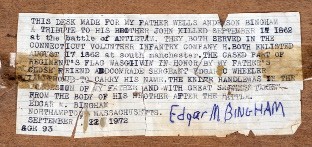 THIS DESK MADE FOR MY FATHER WELLS ANDERSON BINGHAM
A TRIBUTE TO HIS BROTHER JOHN KILLED SEPTEMBER 17 1862
at the battle of ANTIETAM. THEY BOTH SERVED IN THE
CONNECTICUT VOLUNTEER INFANTRY COMPANY H. BOTH ENLISTED
AUGUST 17 1862 at south manchester. THE CASED PART OF
REGIMENT'S FLAG WAS GIVEN IN HONOR BY MY FATHER'S
CLOSE FRIEND COMRADE SERGEANT WHEELER
TO CARRY HIS NAME. THE KNIFE HANDLE WAS IN THE
OF MY FATHER AND WITH GREAT
FROM THE BODY OF HIS BROTHER AFTER THE BATTLE.
EDGAR M. BINGHAM
NORTHAMPTON MASSACHUSETTS.
SEPTEMBER 22 1972
AGE 93
Edgar M BINGHAM